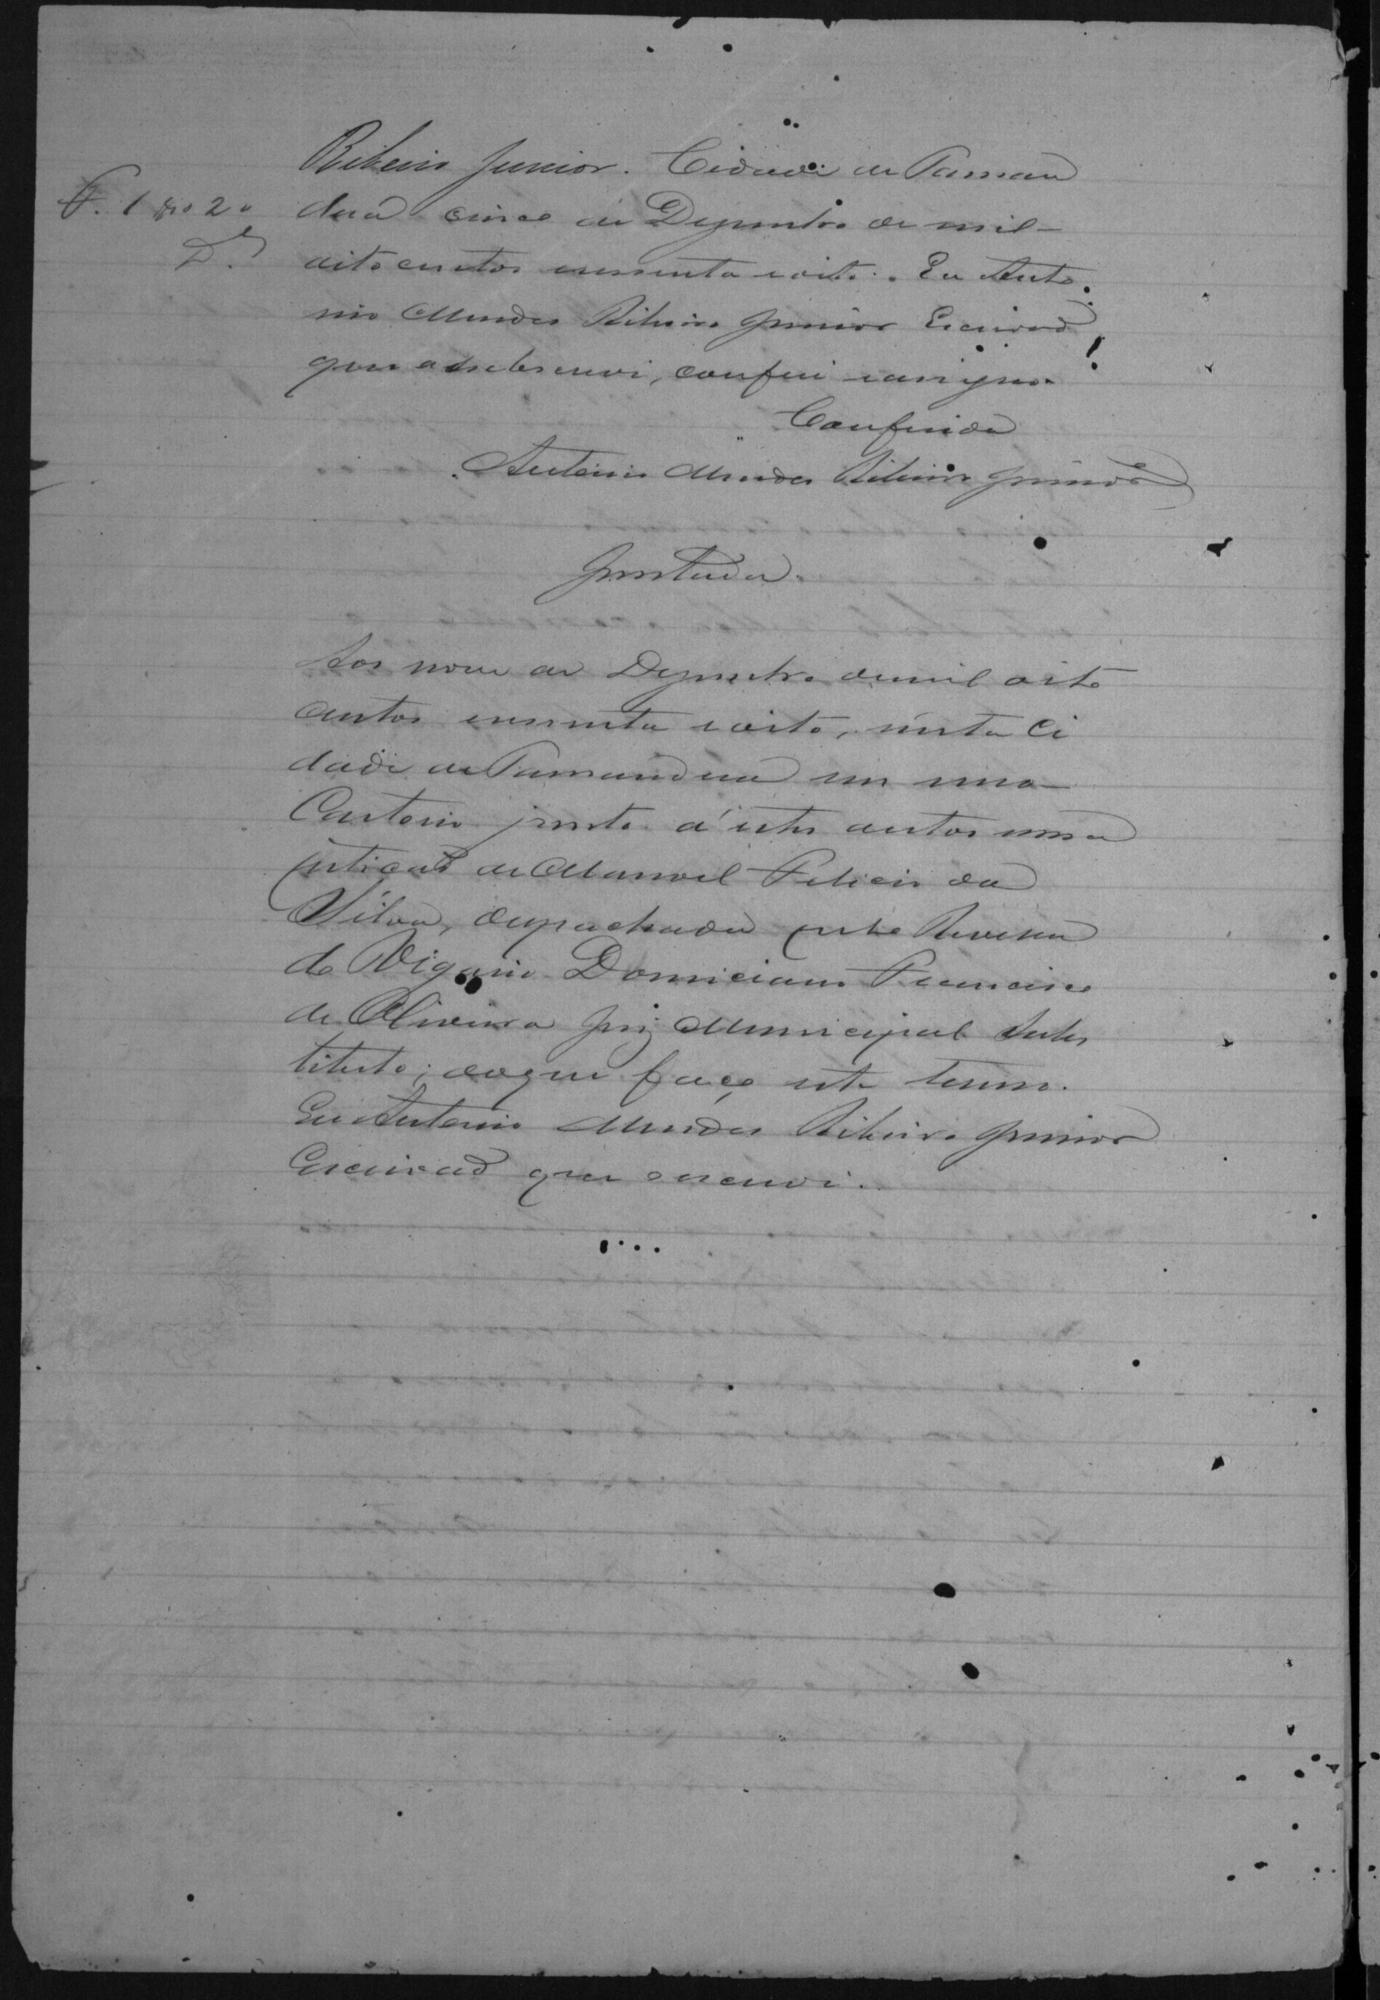 Ribeiro Junior. Cidade de Taman
dua cinco de Dezembro de mil
oito centos sessenta e oito. Eu Anto
nio Mendes Ribeiro Junior Escrivaõ
que a subscrevi, conferi e assigno.
Conferida
Antonio Mendes Ribeiro Junior
Juntada.
Aos nove de Dezembro de mil oito
centos sessenta e oito, nesta Ci
dade de Tamanduá em meo
Cartorio junto á estes autos uma
petiçaõ de Manoel Felicio da
Silva, despachada pelo Reveren
do Vigario Domiciano Francisco
de Oliveira Juiz Municipal Subs
tituto; do que faço este termo.
Eu Antonio Mendes Ribeiro Junior
Escrivaõ que o escrevi.